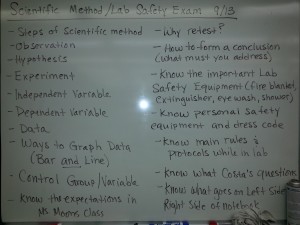 Scientific Method/Lab Safety Exam 9/13
- Steps of Scientific method
- Observation
- Hypothesis
- Experiment
- Independent Variable
- Dependent Variable
- Data
- Ways to Graph Data
(Bar and Line)
- Control Group/Variable
- Know the expectations in
Ms Moems Class
- Why retest?
- How to form a conclusion
(what must you address)
- Know the important Lab
Safety Equipment (fire blanket,
extinguisher, eye wash, shower)
- Know personal safety
equipment and dress code
- Know main rules &
protocols while in lab
- Know what Costa's question
- Know what goes on Left Side
Right Side of notebook